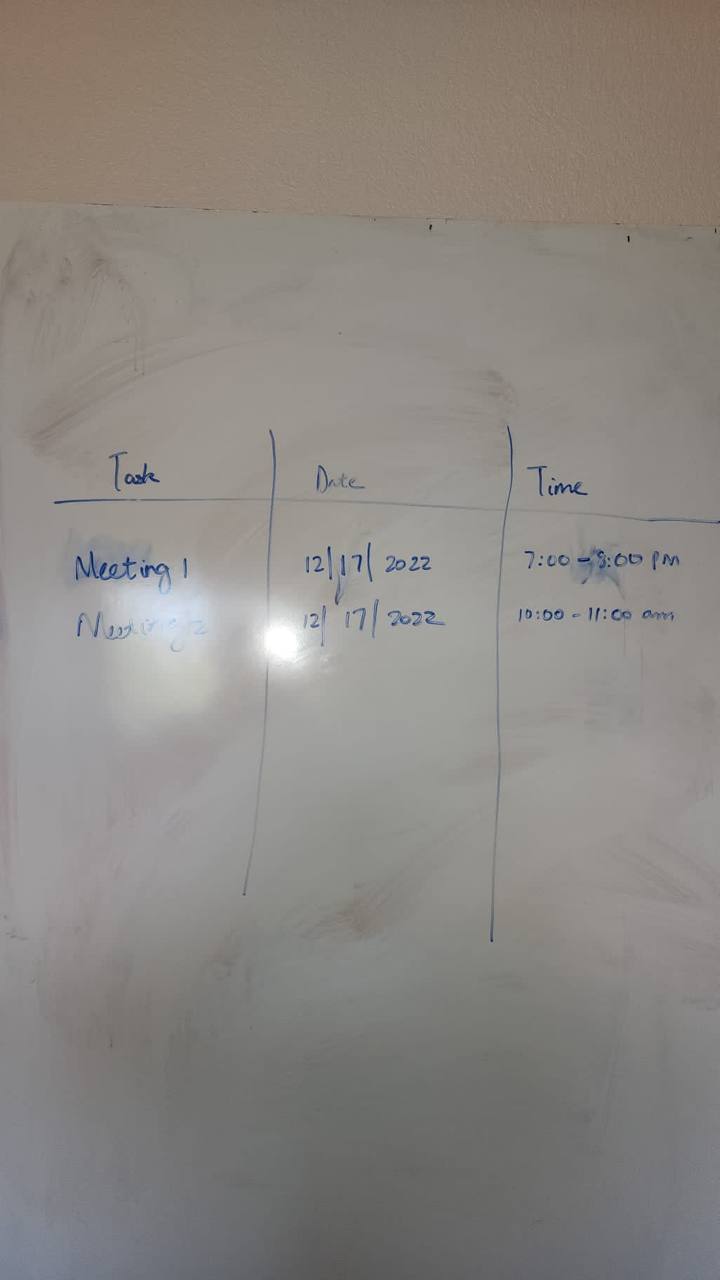 Task Date Time
Meeting 1 12/17/2022 7:00 - 8:00 PM
Meeting 2 12/17/2022 10:00 - 11:00 am